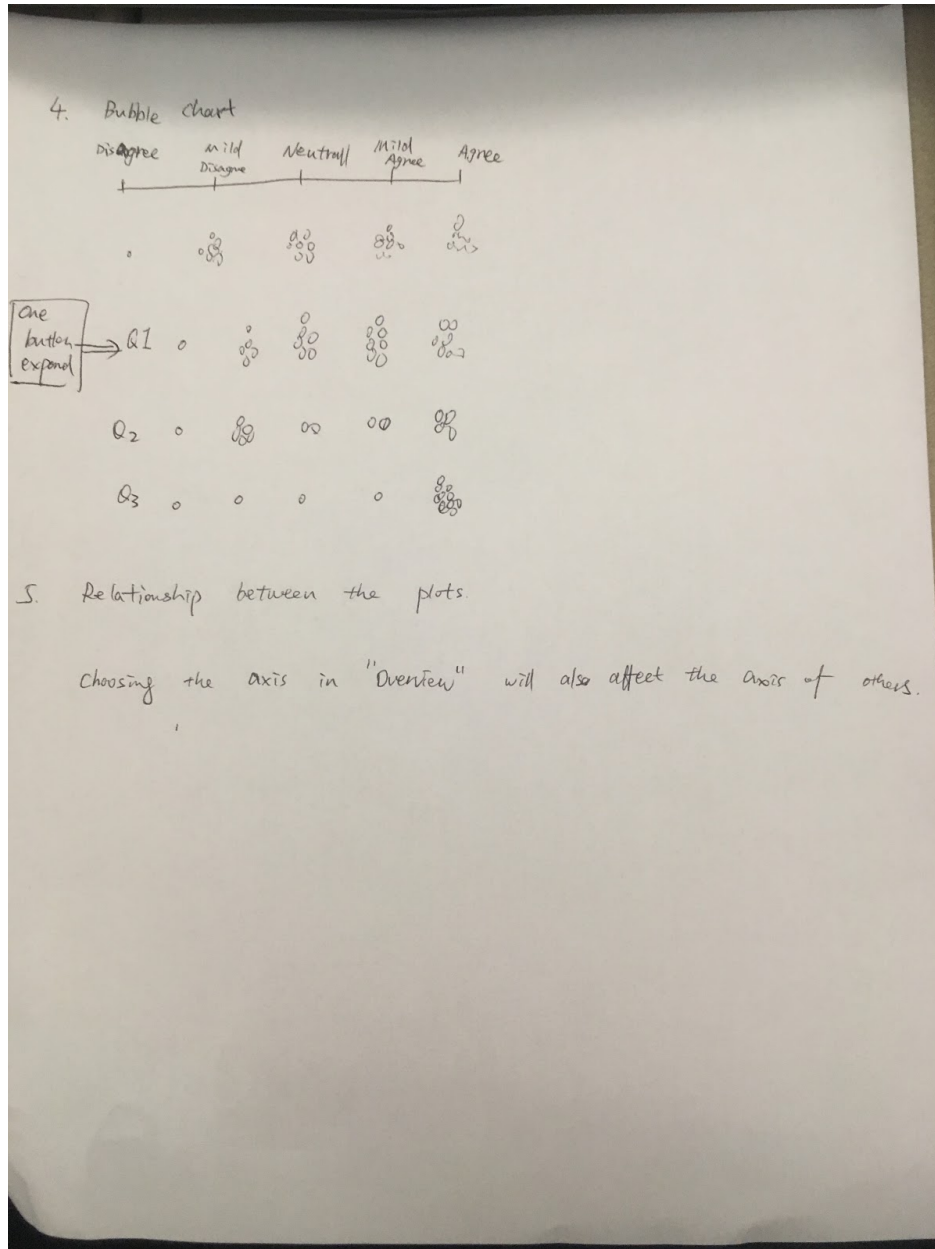 4. Bubble chart
Disagree Mild Disagree Neutrall Mild Agree Agree
One
button
expand
Q1
Q2
Q3
5. Relationship between the plots.
Choosing the axis in "Overview" will also affect the axis of others.